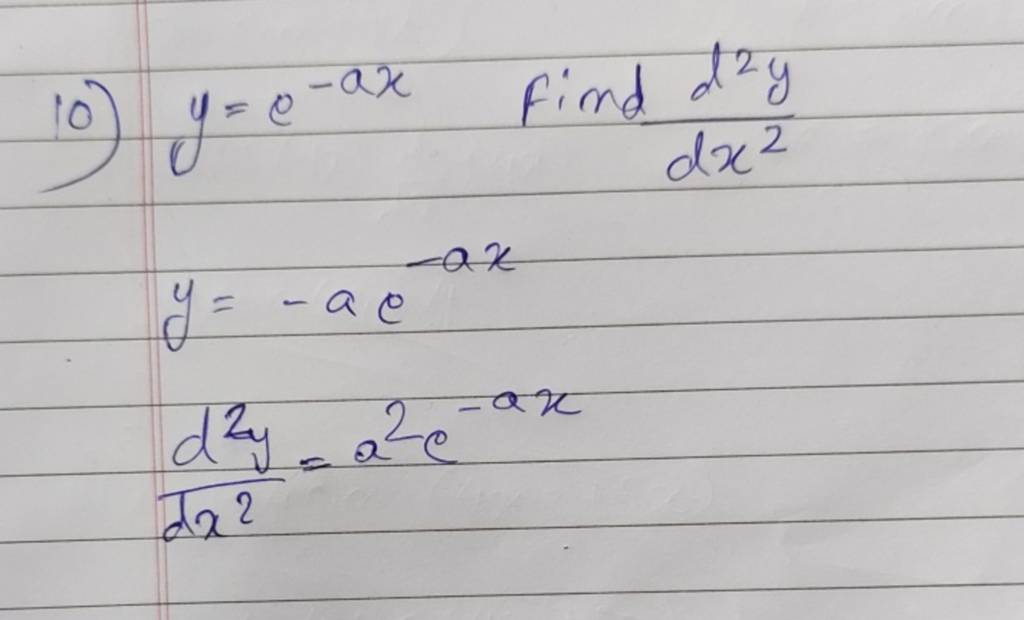 10) y = e^-ax Find d²y/dx²
y = -a e^-ax
d²y/dx² = a²e^-ax